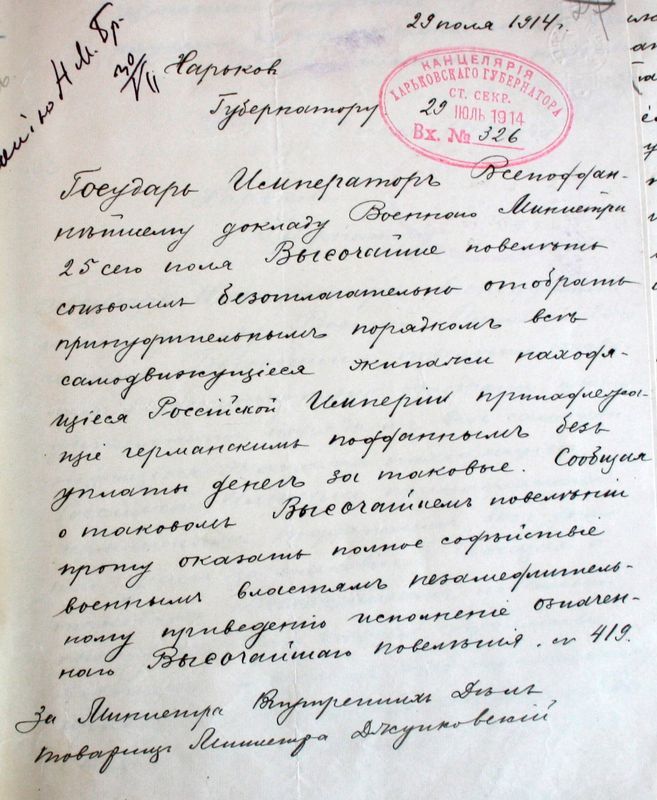 29 юля 1914 г.
Н. М. Бр.
30/VII
Харьков
Губернатору
КАНЦЕЛЯРІЯ
ХАРЬКОВСКАГО ГУБЕРНАТОРА
СТ. СЕКР.
29 ІЮЛЬ 1914
Вх. № 326
Государь Императоръ Всеподдан-
нѣйшему докладу Военнаго Министра
25 сего юля Высочайше повелѣть
соизволилъ безотлагательно отобрать
принудительнымъ порядкомъ всѣ
самодвижущіеся экипажи находя-
щіеся Россійской Имперіи принадлежа-
щіе германскимъ подданнымъ безъ
уплаты денегъ за таковые. Сообщая
о таковомъ Высочайшемъ повелѣніи
прошу оказать полное содѣйствіе
военнымъ властямъ незамедлитель-
ному приведенію исполненіе означен-
наго Высочайшаго повелѣнія. № 419.
За Министра Внутреннихъ Дѣлъ
товарищъ Министра Джунковскій